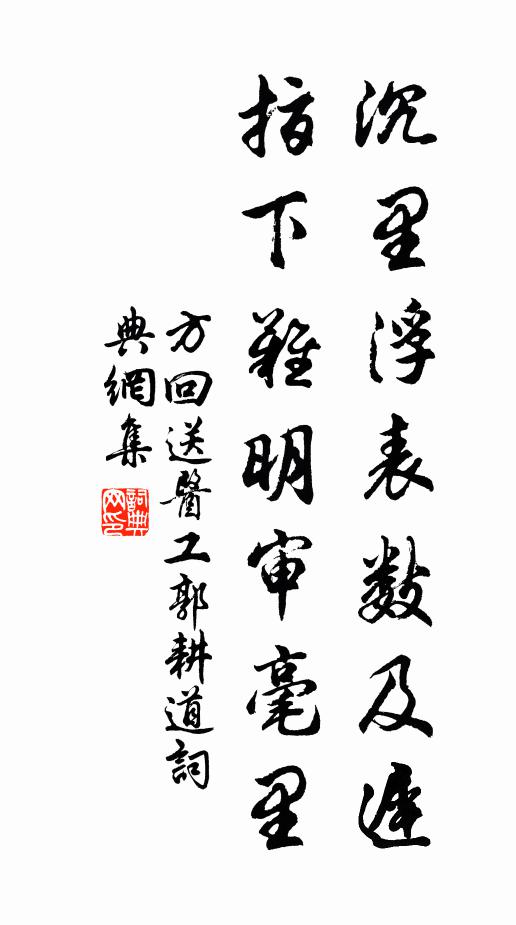 沉里浮表數及遲
指下難明审毫里
方回送醫工郭耕道詞
典網集
詞典網印